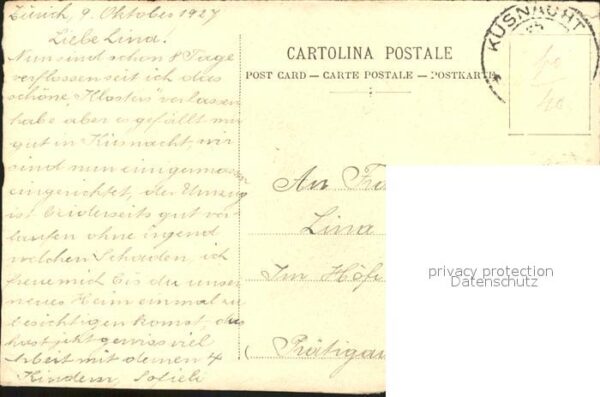 Zürich, 9. Oktober 1927
Liebe Lina!
Nun sind schon 8 Tage
verflossen seit ich das
schöne "Klosters" verlassen
habe aber es gefällt mir
gut in Küsnacht, wir
sind nun einigermassen
eingerichtet, der Umzug
ist beiderseits gut ver-
laufen ohne irgend
welchen Schaden, ich
freue mich bis du unser
neues Heim einmal zu
besichtigen komst, du
hast jetzt gewiss viel
Arbeit mit deinen 4
Kindern,
CARTOLINA POSTALE
POST CARD — CARTE POSTALE — POSTKARTE
KÜSNACHT
An
Lina
Im Höfe
Prätigau
privacy protection
Datenschutz